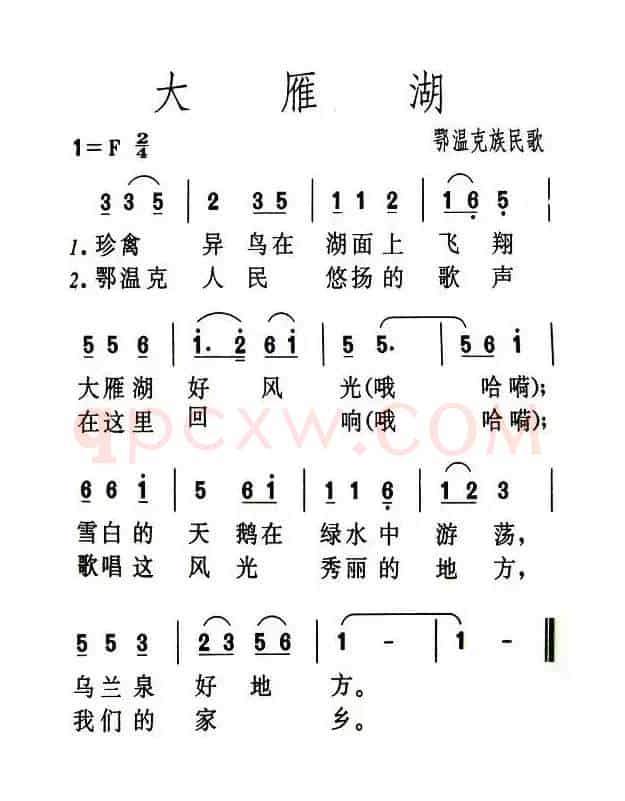 大雁湖
1=F 2/4 鄂温克族民歌
3 3 5 | 2 3 5 | 1 1 2 | 1 6̣ 5̣ |
1.珍禽 异鸟在 湖面上 飞 翔
2.鄂温克 人民 悠扬的 歌 声
5 5 6 | i· 2̇ 6 i | 5 5· | 5 6 i |
大雁湖 好 风 光(哦 哈嗬);
在这里 回 响(哦 哈嗬);
qpcxw.COM
6 6 i | 5 6 i | 1 1 6̣ | 1 2 3 |
雪白的 天 鹅在 绿水中 游 荡,
歌唱这 风 光 秀丽的 地 方,
5 5 3 | 2 3 5 6 | 1 - | 1 - ‖
乌兰泉 好 地 方。
我们的 家 乡。